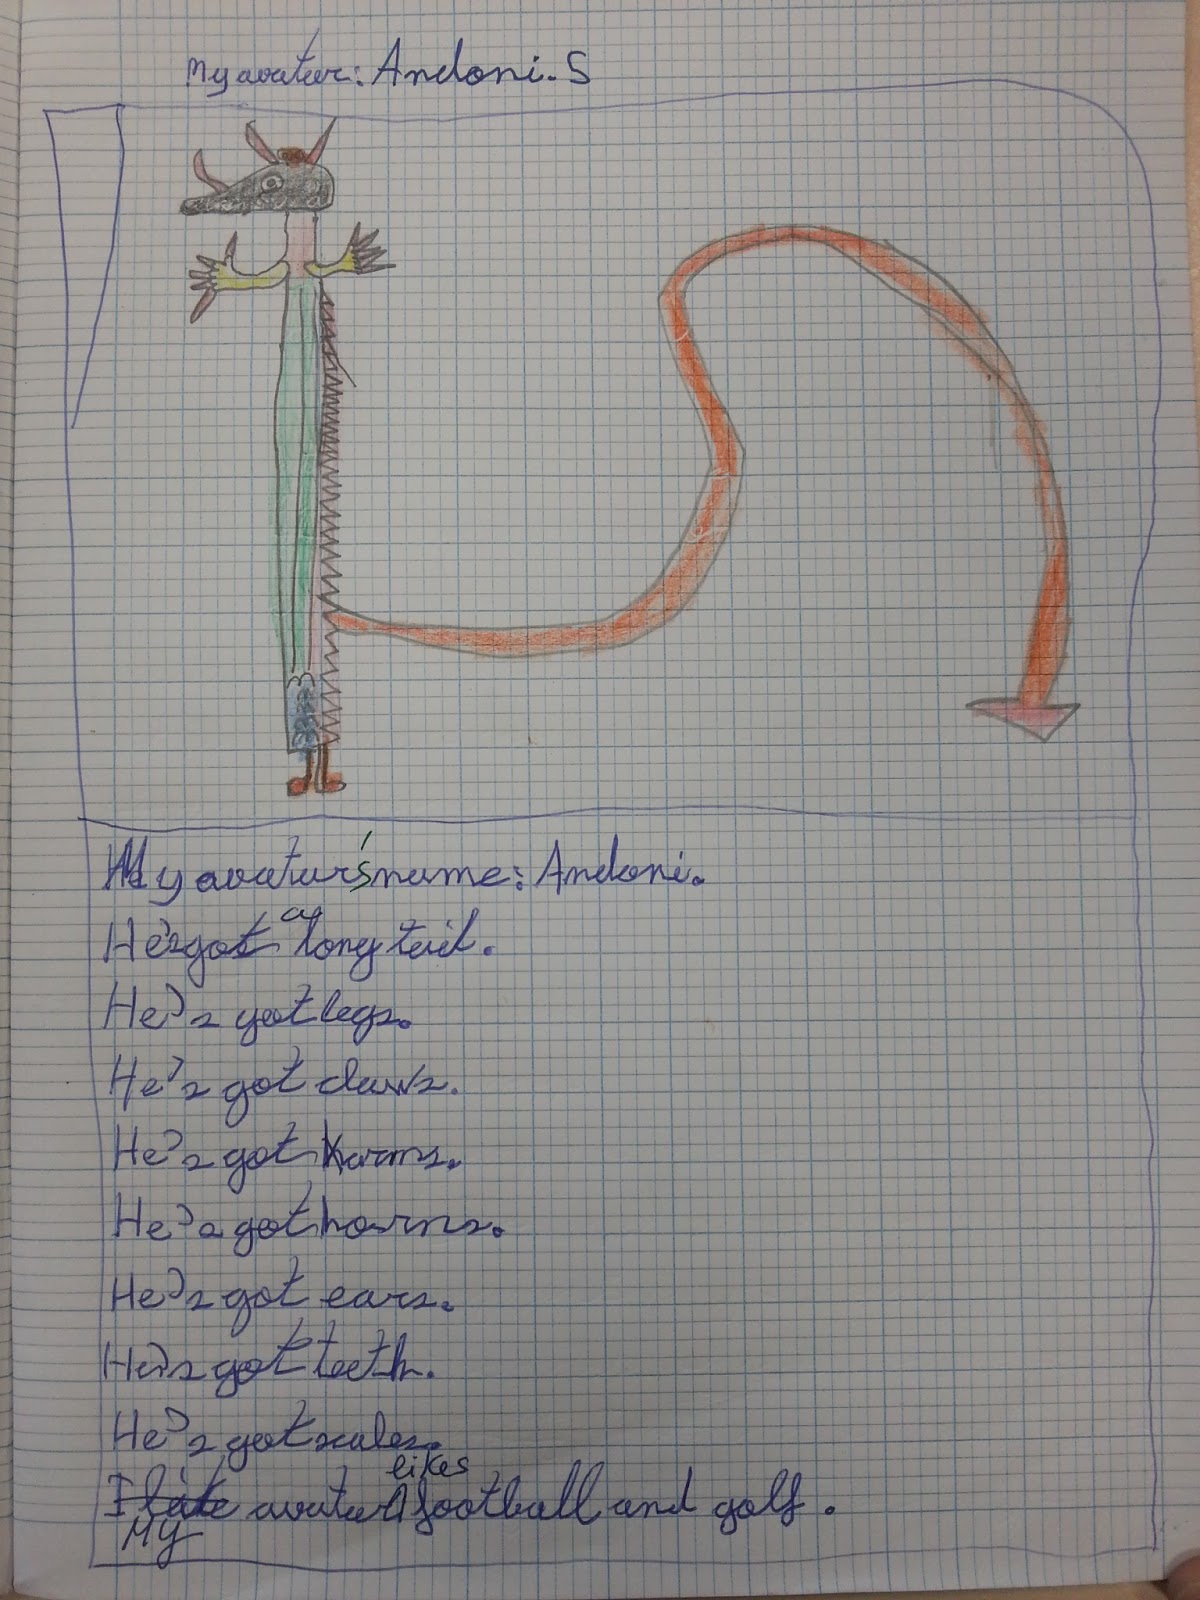 My avatar: Andoni. S
My avatar's name: Andoni.
He's got a long tail.
He's got legs.
He's got claws.
He's got arms.
He's got horns.
He's got ears.
He's got teeth.
He's got scales.
I like avatar likes football and golf.
My